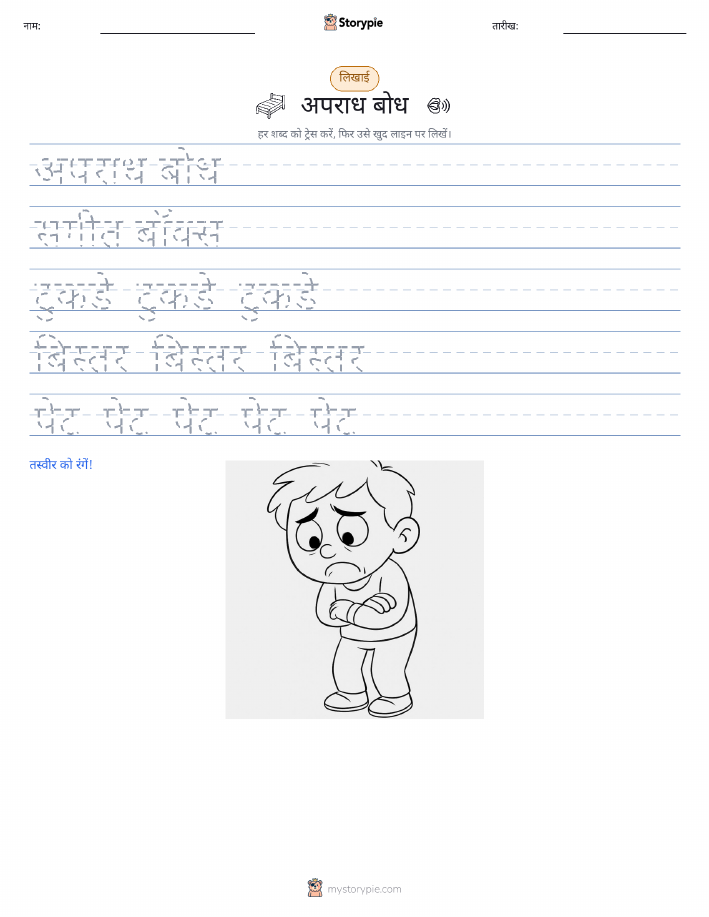 नाम:
Storypie
तारीख:
लिखाई
अपराध बोध
हर शब्द को ट्रेस करें, फिर उसे खुद लाइन पर लिखें।
अपराध बोध
सगीत बॉक्स
टुकडे टुकडे टुकडे
बिस्तर बिस्तर बिस्तर
पेट पेट पेट पेट पेट
तस्वीर को रंगें!
mystorypie.com